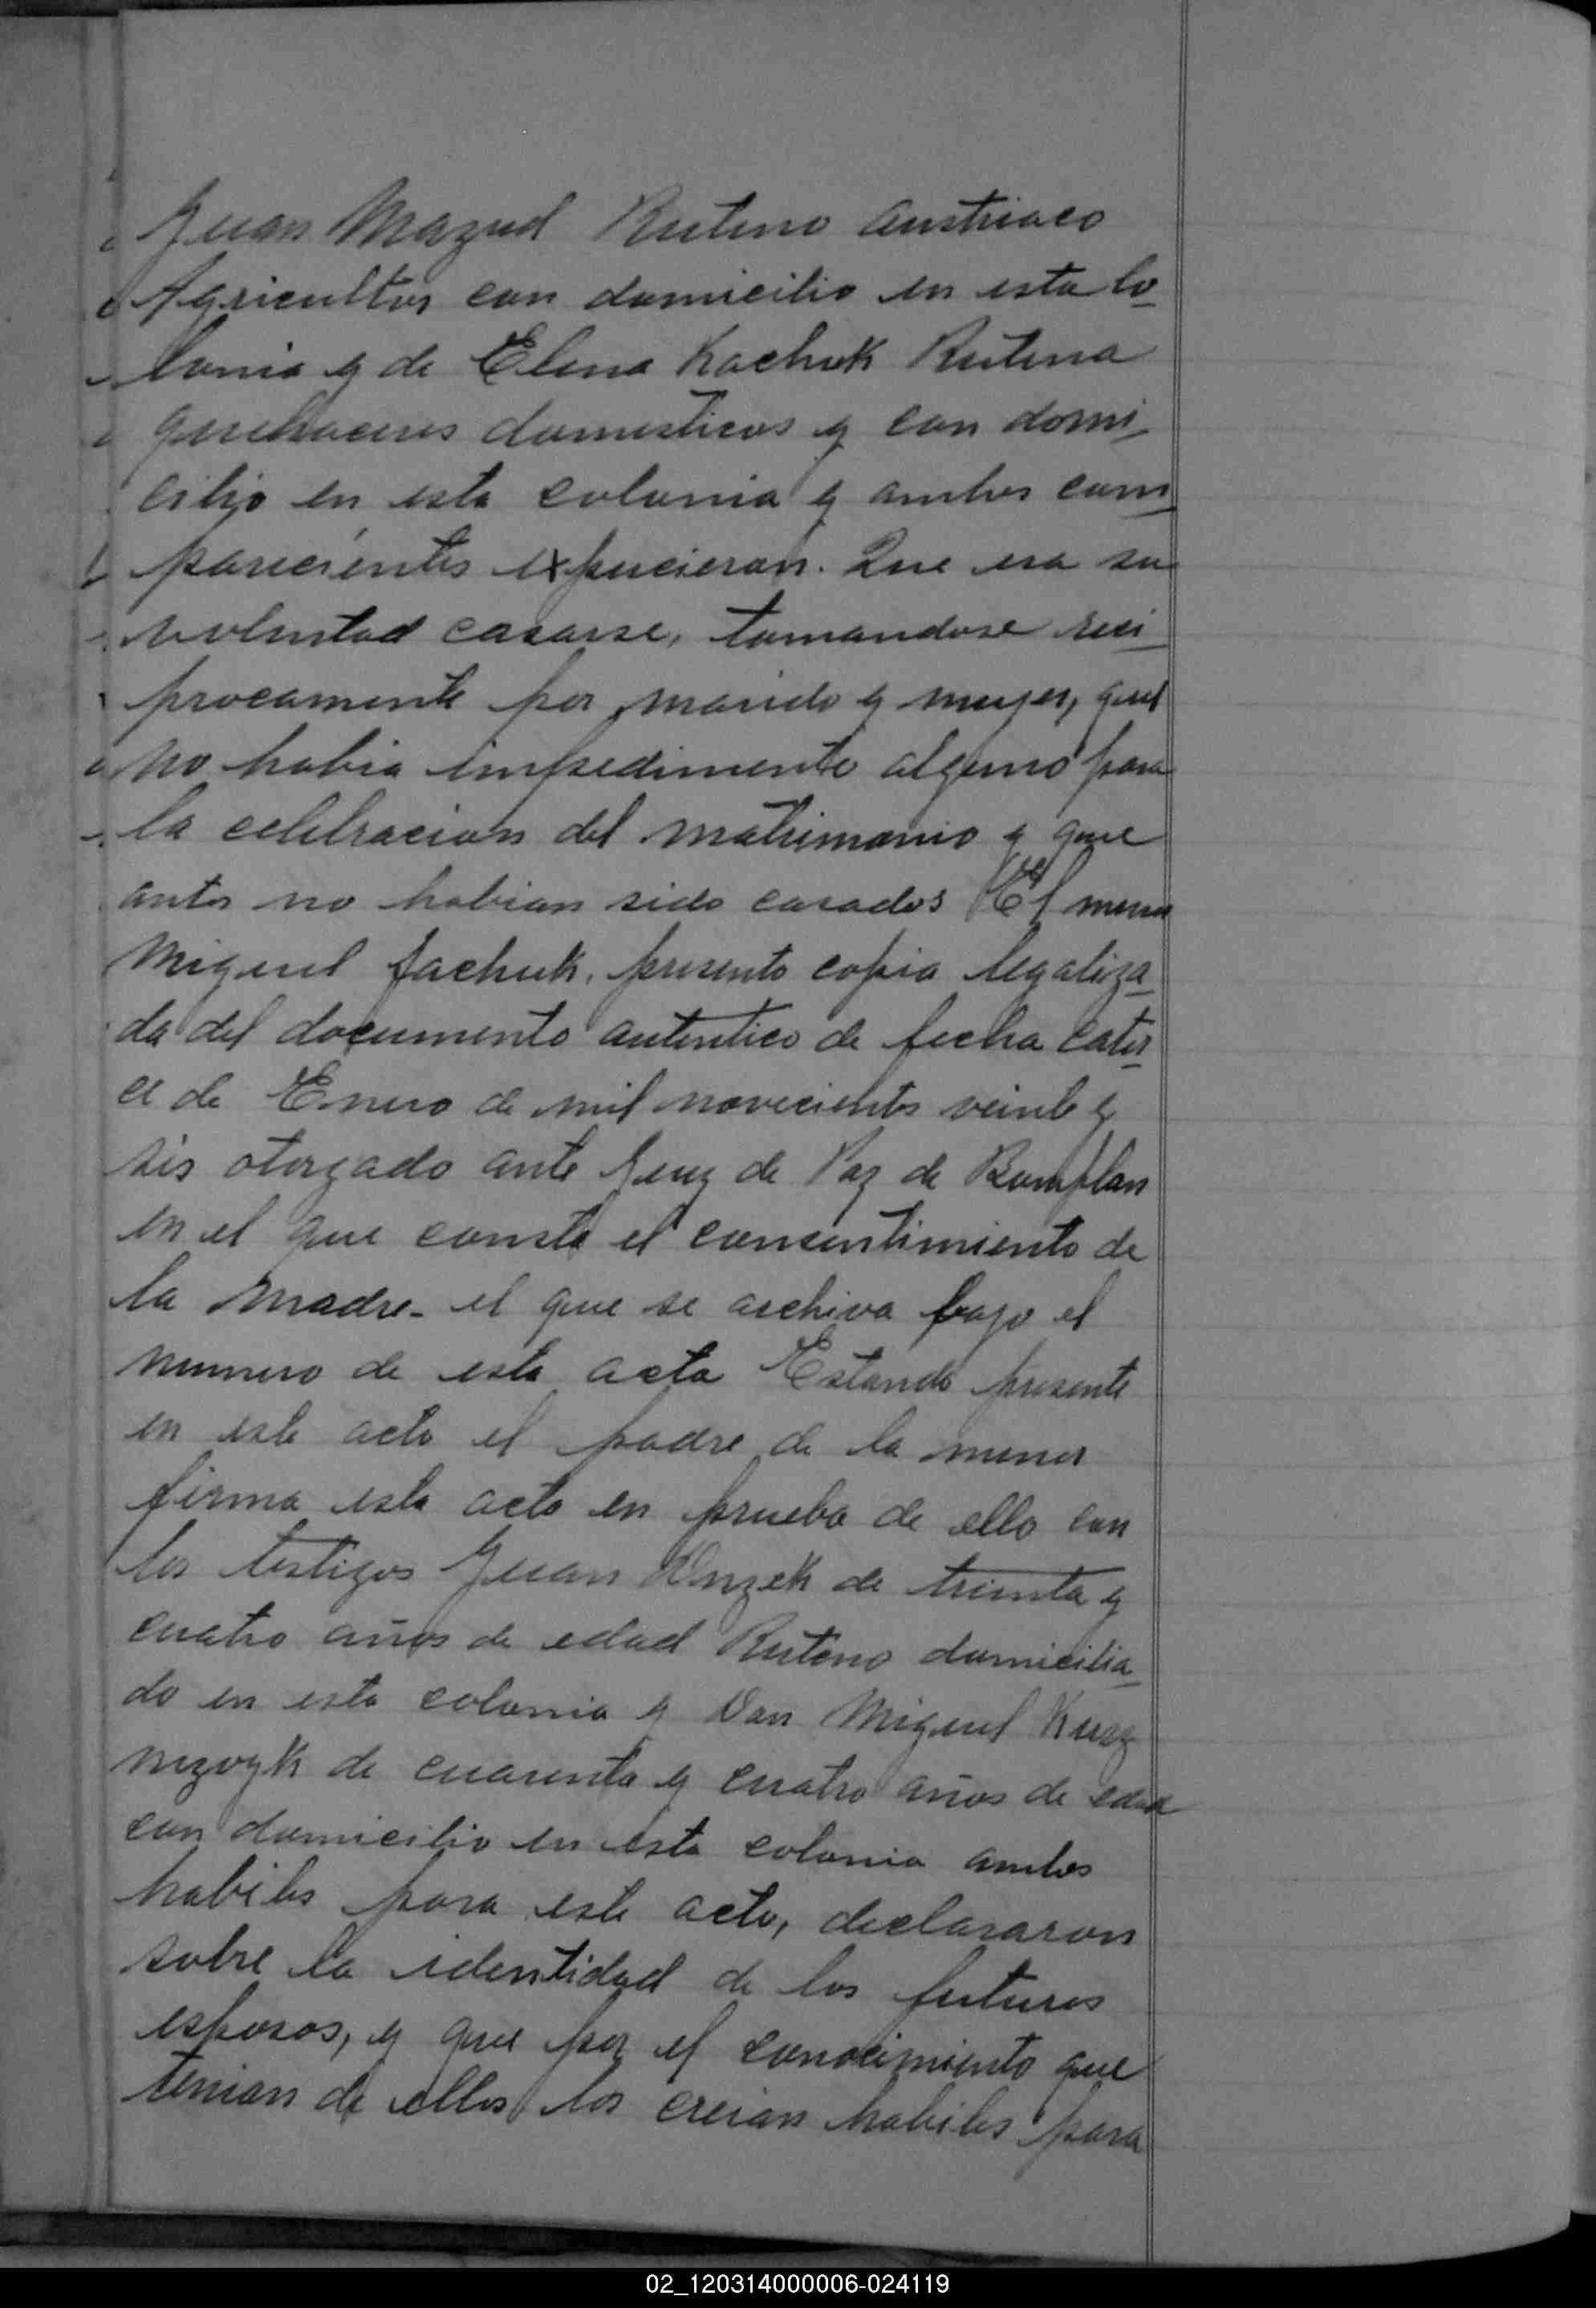 Juan Mazud Ruteno Austriaco
Agricultor con domicilio en esta Co
lonia y de Elena Kachuk Rutena
quehaceres domesticos y con domi
cilio en esta colonia y ambos com
parecientes expucieron. Que era su
voluntad casarse, tomandose reci
procamente por marido y mujer, que
no habia impedimento alguno para
la celebracion del matrimonio y que
antes no habian sido casados El menor
Miguel Jachuk, presento copia legaliza
da del documento autentico de fecha cator
ce de Enero de mil novecientos veinte y
seis otorgado ante Juez de Paz de Bomplan
en el que consta el consentimiento de
la madre - el que se archiva bajo el
numero de esta acta Estando presente
en este acto el padre de la menor
firma esta acta en prueba de ello con
los testigos Juan de treinta y
cuatro años de edad Ruteno domicilia
do en esta colonia y Don Miguel
de cuarenta y cuatro años de edad
con domicilio en esta colonia ambos
habiles para este acto, declararon
sobre la identidad de los futuros
esposos, y que por el conocimiento que
tenian de ellos los creian habiles para
02_120314000006-024119